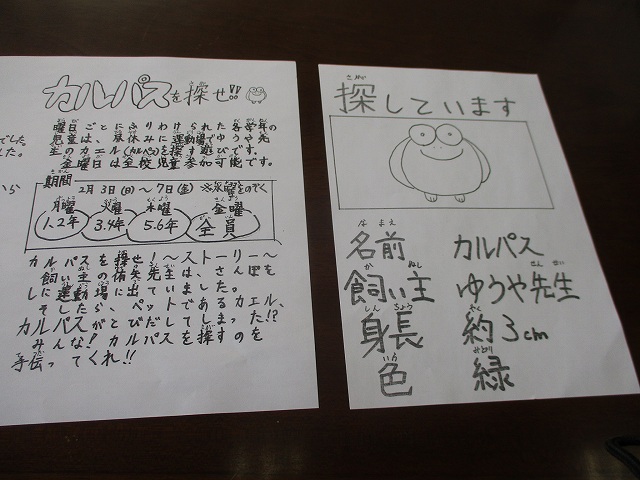 カルパスを探せ!!
曜日ごとにふりわけられた各学年の
児童は、昼休みに運動場でゆうや先
生のカエル(カルパス)を探す遊びです。
金曜日は全校児童参加可能です。
でした。
した。
から
期間
2月3日(月)〜7日(金) ※水曜をのぞく
月曜 火曜 木曜 金曜
1.2年 3.4年 5.6年 全員
カルパスを探せ!〜ストーリー〜
飼い主の侑矢先生は、さんぽを
しに運動場に出ていました。
そしたら、ペットであるカエル、
カルパスがとびだしてしまった!?
みんな!カルパスを探すのを
手伝ってくれ!!
探しています
名前 カルパス
飼い主 ゆうや先生
身長 約3cm
色 緑